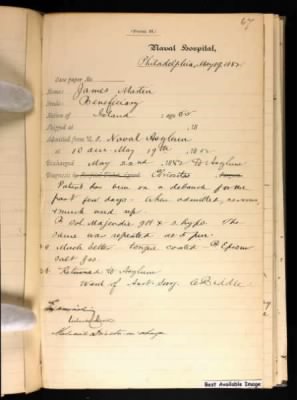 67
(Form 19.)
Naval Hospital,
Philadelphia, May 19, 1882
Case paper No.
Name: James Martin
Grade: Beneficiary
Native of Ireland ; age 60
Shipped at , 18
Admitted from U.S. Naval Asylum
at 10 a.m. May 19th, 1882
Discharged May 22nd, 1882 To Asylum
Diagnosis Ebrietas
Patient has been on a debauch for the
past few days. When admitted, nervous,
& much used up
The
same was repeated at 5 p.m.
Much better tongue coated Epsom
salt
Returned to Asylum
Ward of Asst. Surg. C. Biddle
Medical Director in charge
Best Available Image